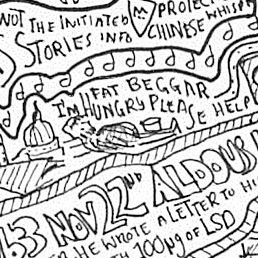 NOT THE INITIATED
STORIES INTO
PROJECT
CHINESE WHISP
FAT BEGGAR
I'M HUNGRY PLEASE HELP
63 NOV 22ND ALDOUS
HE WROTE A LETTER TO HI
100µg OF LSD